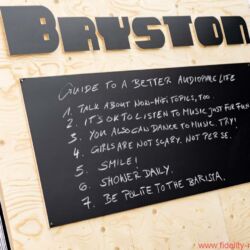 BRYSTON
GUIDE TO A BETTER AUDIOPHILE LIFE
1. TALK ABOUT NON-HIFI TOPICS, TOO.
2. IT'S OK TO LISTEN TO MUSIC JUST FOR FUN
3. YOU ALSO CAN DANCE TO MUSIC. TRY!
4. GIRLS ARE NOT SCARY. NOT PER SE.
5. SMILE!
6. SHOWER DAILY.
7. BE POLITE TO THE BARISTA.
www.fidelity-